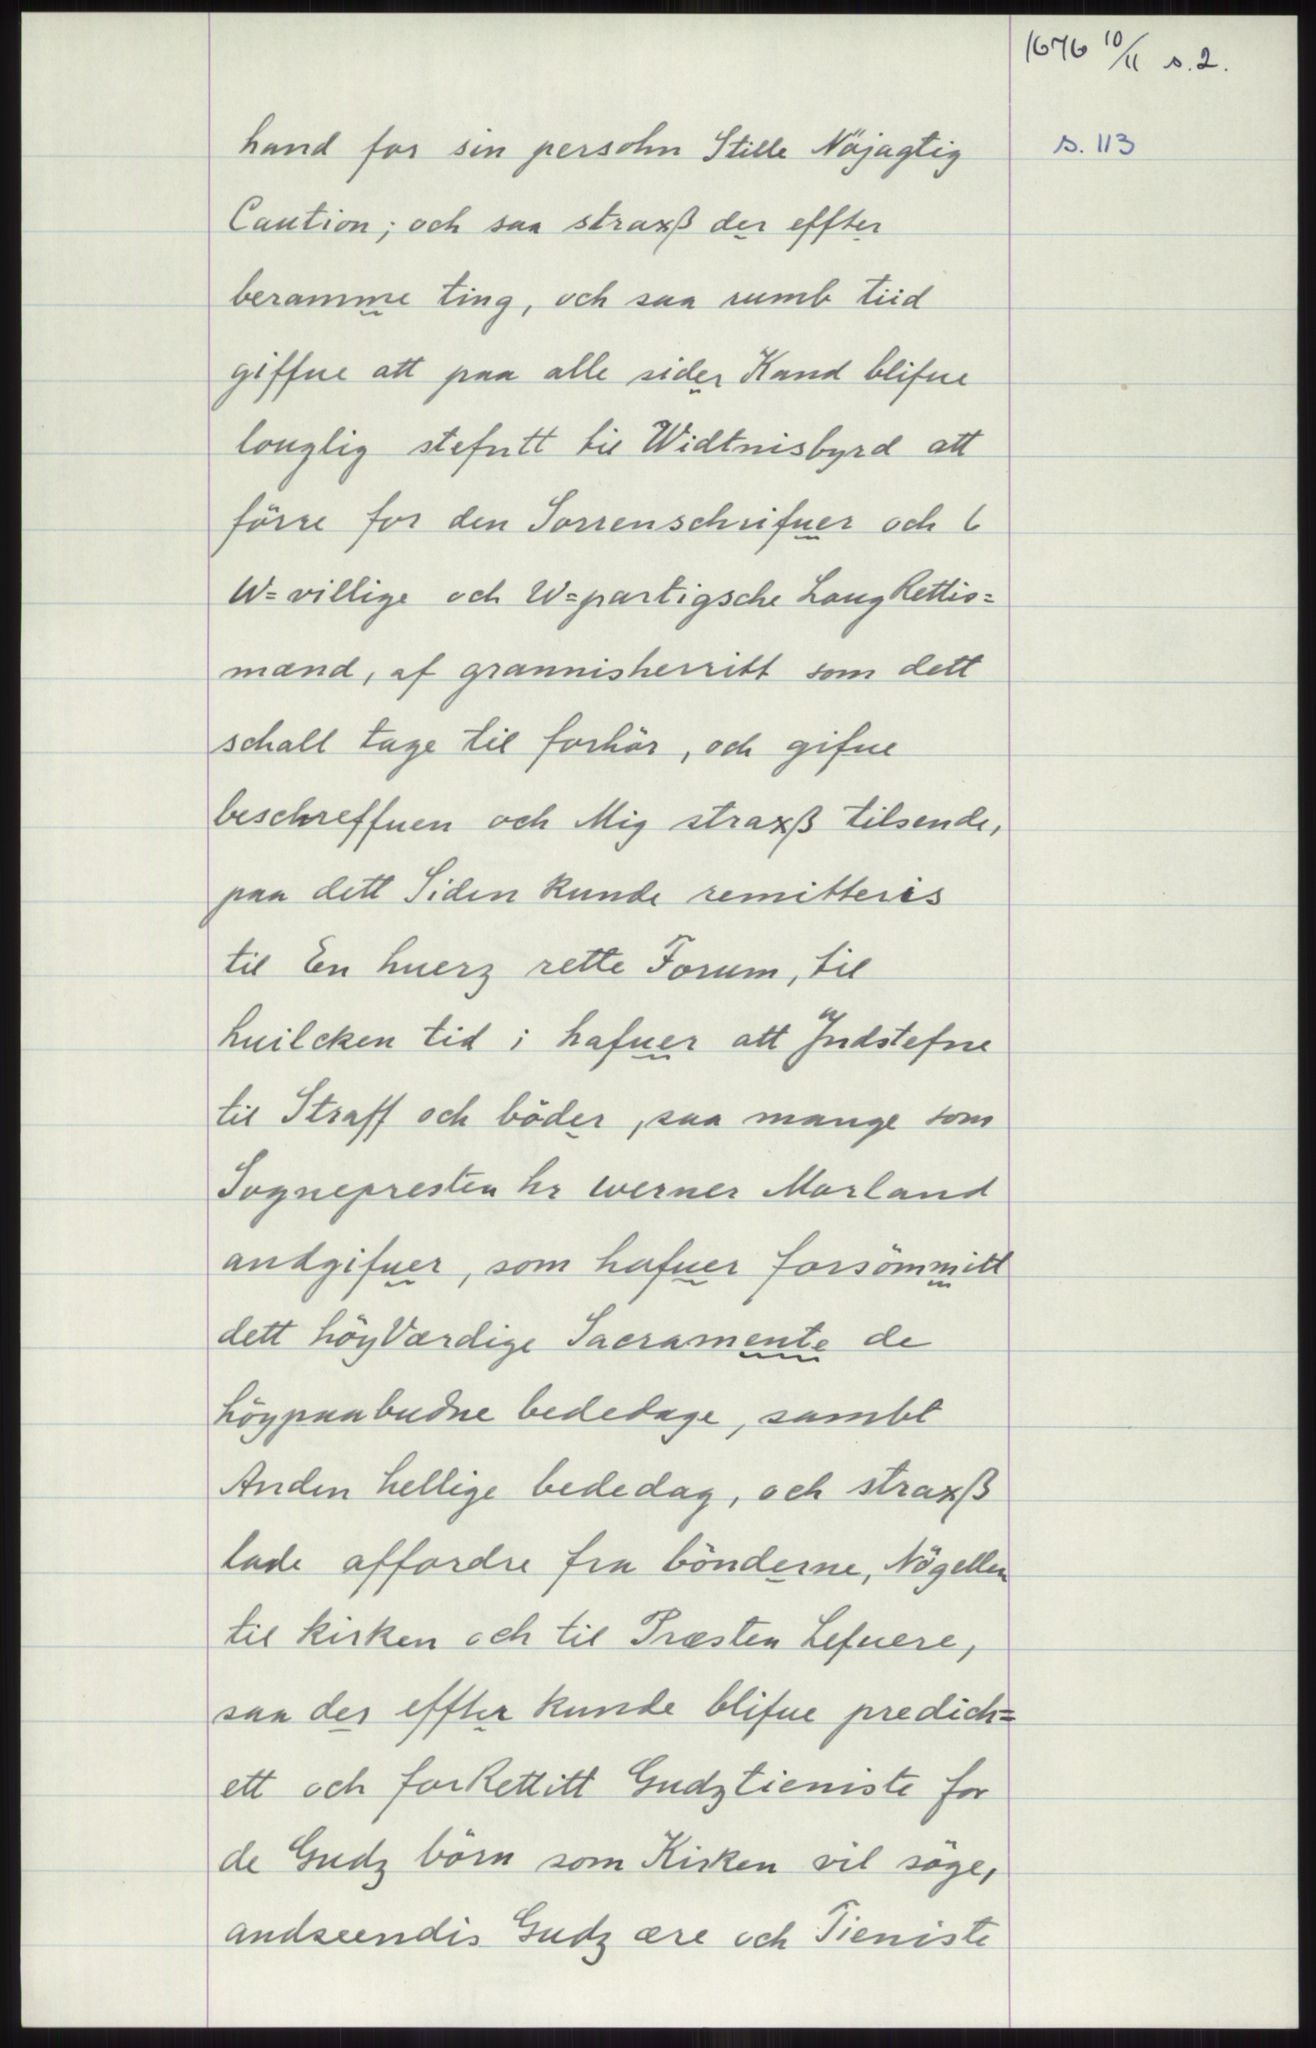 1676 10/11 s. 2.
s. 113
hand for sin persohn Stille Nöjagtig
Caution; och saa straxß der effter
beramme ting, och saa rumb tiid
giffue att paa alle sider Kand blifue
louglig stefntt til Widtnisbyrd att
förre for den Sorrenschrifuer och 6
W=villige och W=partigsche Laug Rettis=
mænd, af grannisherritt som dett
schall tage til forhör, och gifue
beschreffuen och Mig straxß tilsende,
paa dett Siden kunde remitteris
til En huerz rette Forum, til
huilcken tid i hafuer att Jndstefne
til Straff och böder, saa mange som
Sognepresten hr werner Morland
andgifuer, som hafuer forsömmitt
dett höyVærdige Sacramente de
höypaabudne bededage, sambt
Anden hellige bededag, och straxß
lade affordre fra bönderne, Nögellen
til kirken och til Præsten Lefuere,
saa der effter kunde blifue predich=
ett och forRettitt Gudztieniste for
de Gudz börn som Kirken vil söge,
andseendis Gudz ære och Tieniste